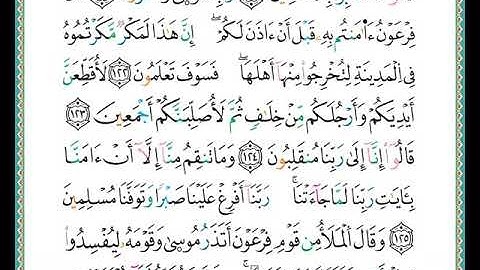 فِرْعَوْنُ ءَامَنتُم بِهِۦ قَبْلَ أَنْ ءَاذَنَ لَكُمْ ۖ إِنَّ هَٰذَا لَمَكْرٌ مَّكَرْتُمُوهُ
فِى ٱلْمَدِينَةِ لِتُخْرِجُوا۟ مِنْهَآ أَهْلَهَا ۖ فَسَوْفَ تَعْلَمُونَ ١٢٢ لَأُقَطِّعَنَّ
أَيْدِيَكُمْ وَأَرْجُلَكُم مِّنْ خِلَٰفٍ ثُمَّ لَأُصَلِّبَنَّكُمْ أَجْمَعِينَ ١٢٣
قَالُوٓا۟ إِنَّآ إِلَىٰ رَبِّنَا مُنقَلِبُونَ ١٢٤ وَمَا تَنقِمُ مِنَّآ إِلَّآ أَنْ ءَامَنَّا
بِـَٔايَٰتِ رَبِّنَا لَمَّا جَآءَتْنَا ۚ رَبَّنَآ أَفْرِغْ عَلَيْنَا صَبْرًا وَتَوَفَّنَا مُسْلِمِينَ
١٢٥ وَقَالَ ٱلْمَلَأُ مِن قَوْمِ فِرْعَوْنَ أَتَذَرُ مُوسَىٰ وَقَوْمَهُۥ لِيُفْسِدُوا۟